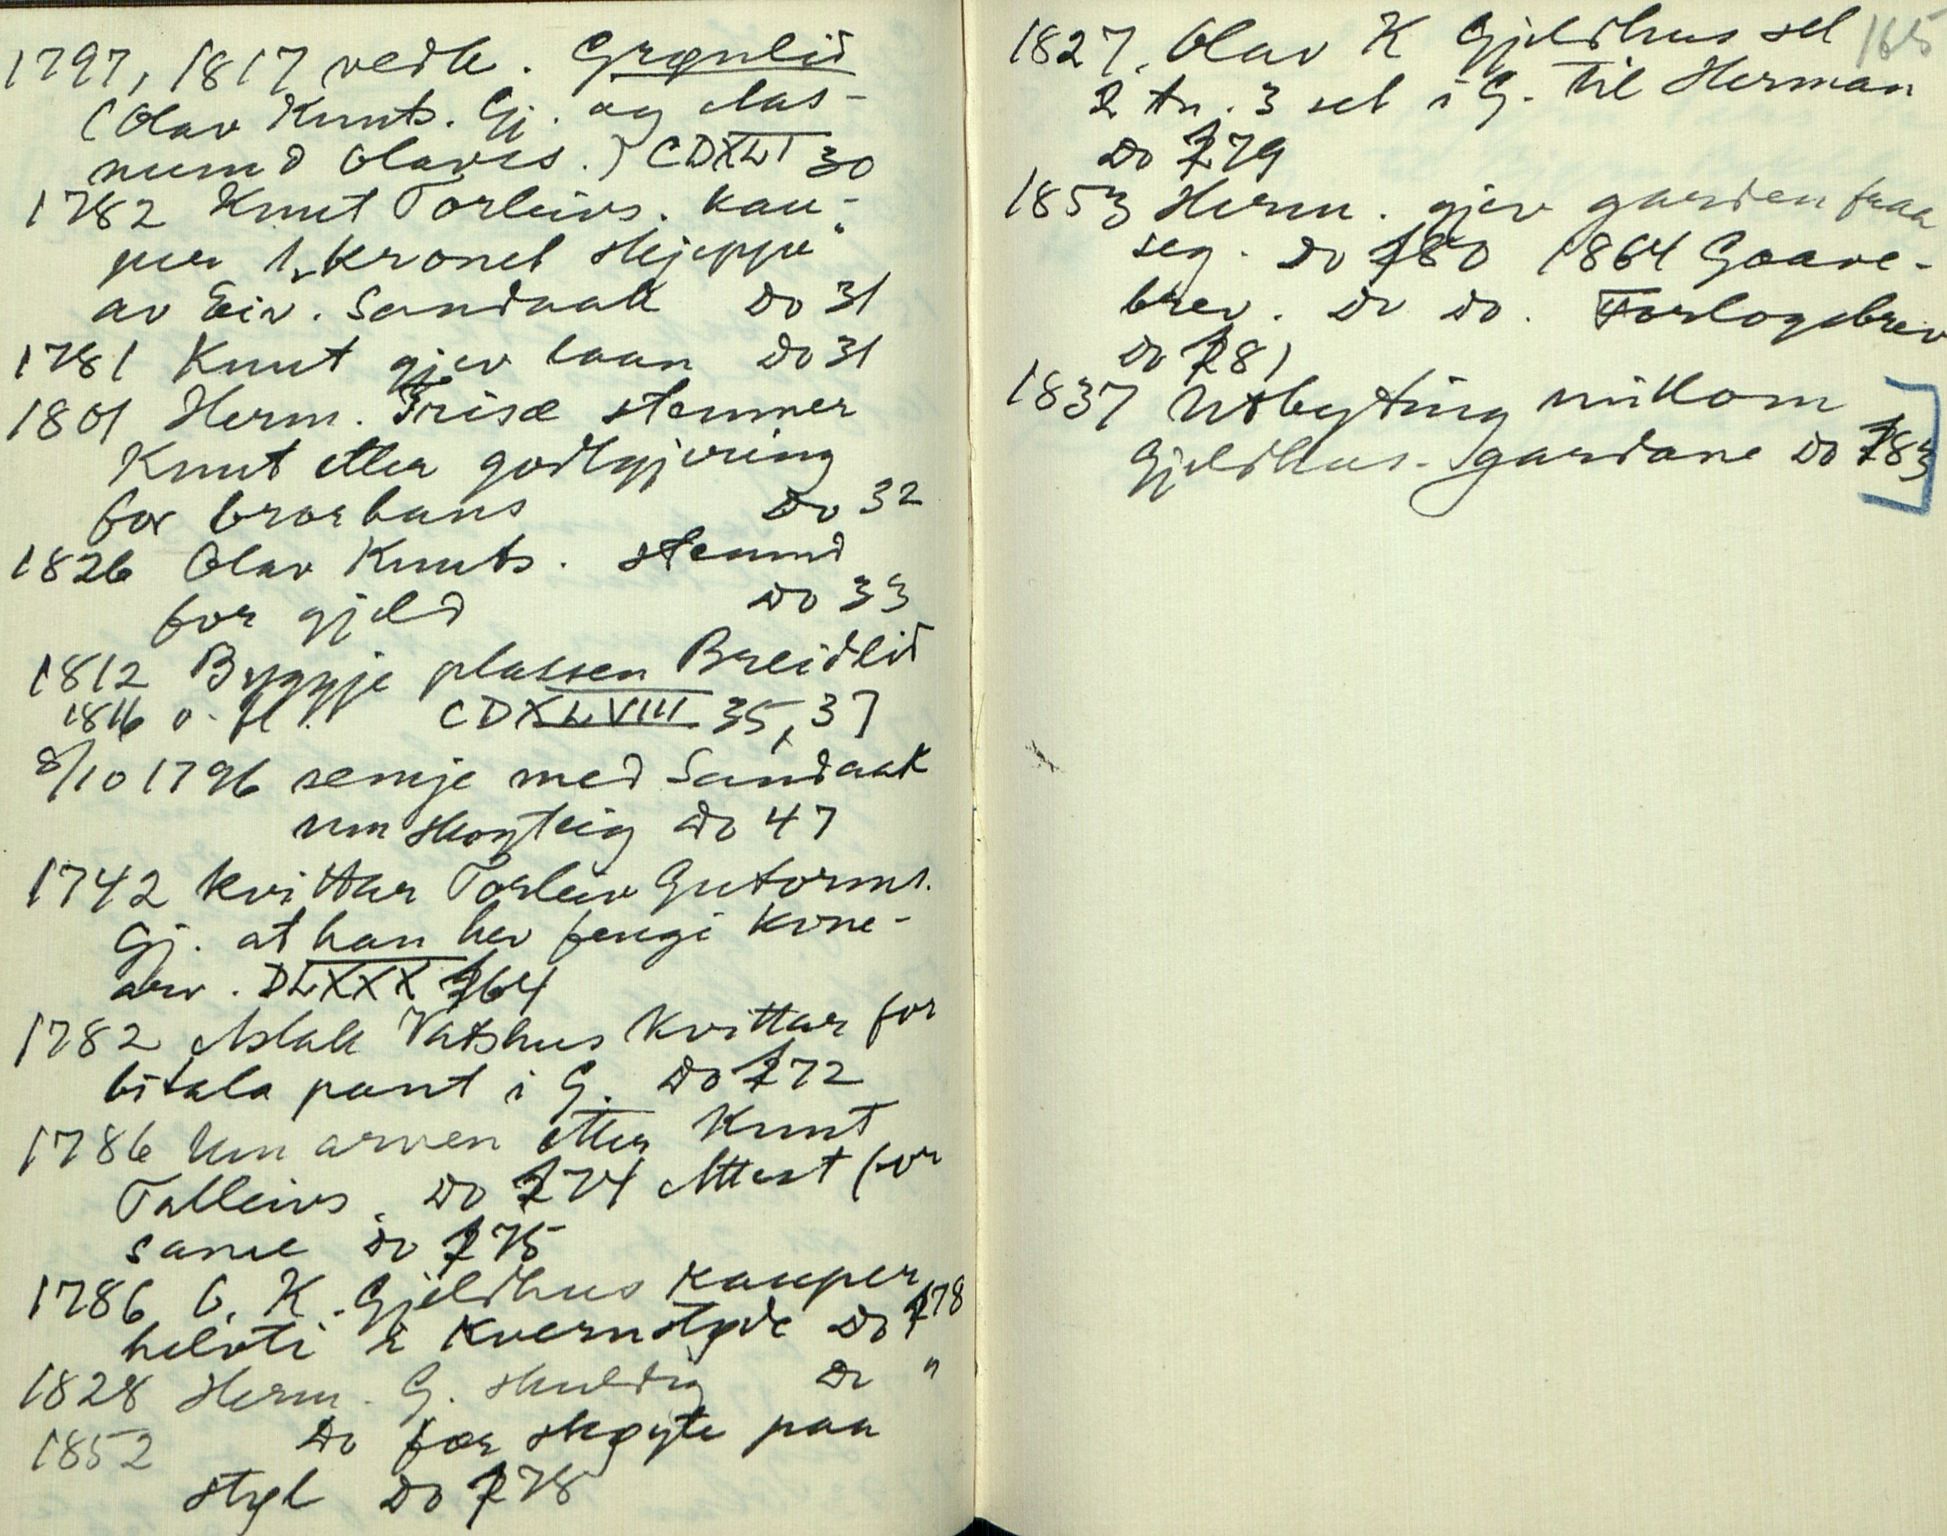 1797, 1817 vedk. Grønlid
(Olav Knuts. Gj. og Aas-
mund Olavss.) CDXLI 30
1782 Knut Torleivs. kau-
per 1 "kronet skjeppe"
av Eiv. Sandaak Do 31
1781 Knut gjev laan Do 31
1801 Herm. Frisæ stemner
Knut etter godtgjering
for brorhans Do 32
1826 Olav Knuts. stemnd
for gjeld Do 33
1812 Byggje plassen Breidlid
1816 o. fl. CDXLVIII 35, 37
8/10 1796 semje med Sandaak
um skogteig Do 47
1742 kvittar Torleiv Gutorms.
Gj. at han hev fengi kone-
arv. DLXXX 264
1782 Aslak Vatshus kvittar for
bitala pant i G. Do 272
1786 Um arven etter Knut
Talleivs. Do 274 Attest for
same Do 275
1786 O. K. Gjeldhus kauper
helvti i Kvernstøde Do 278
1828 Herm. G. skuldig Do "
1852 Do fær skøyte paa
styk Do 278
165
1827. Olav K Gjeldhus sel
2 tn. 3 set i G. til Herman
Do 279
1853 Herm. gjev garden fraa
seg. Do 280 1864 Gaave-
brev. Do Do. Forlogsbrev
Do 281
1837 Utbyting millom
Gjeldhus-gardane Do 283